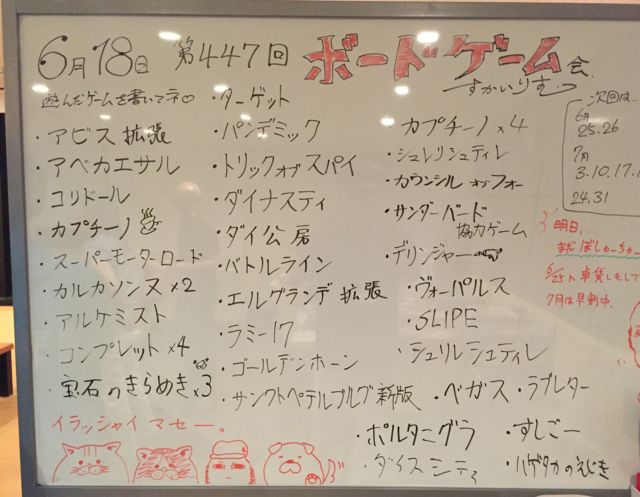 6月18日 第447回 ボードゲーム会
すかいりすっ
遊んだゲームを書いてネ♡
・アビス 拡張
・アベカエサル
・コリドール
・カプチーノ
・スーパーモーターロード
・カルカソンヌ×2
・アルケミスト
・コンプレット×4
・宝石のきらめき×3
イラッシャイマセー。
・ターゲット
・パンデミック
・トリックオブスパイ
・ダイナスティ
・ダイ公房
・バトルライン
・エルグランデ 拡張
・ラミー17
・ゴールデンホーン
・サンクトペテルブルグ新版
・カプチーノ×4
・シュレリシュティレ
・カウンシル オブ フォー
・サンダーバード
協力ゲーム
・デリンジャー
・ヴォーパルス
・SLIPE
・シュリルシュティレ
・ベガス
・ラブレター
・ポルタニグラ
・すしごー
・ダイスシティ
・ハゲタカのえじき
次回は..
6月
25.26
7月
3.10.17.1
24.31
明日、
6/25は 卓貸しもして
7月は早割中.